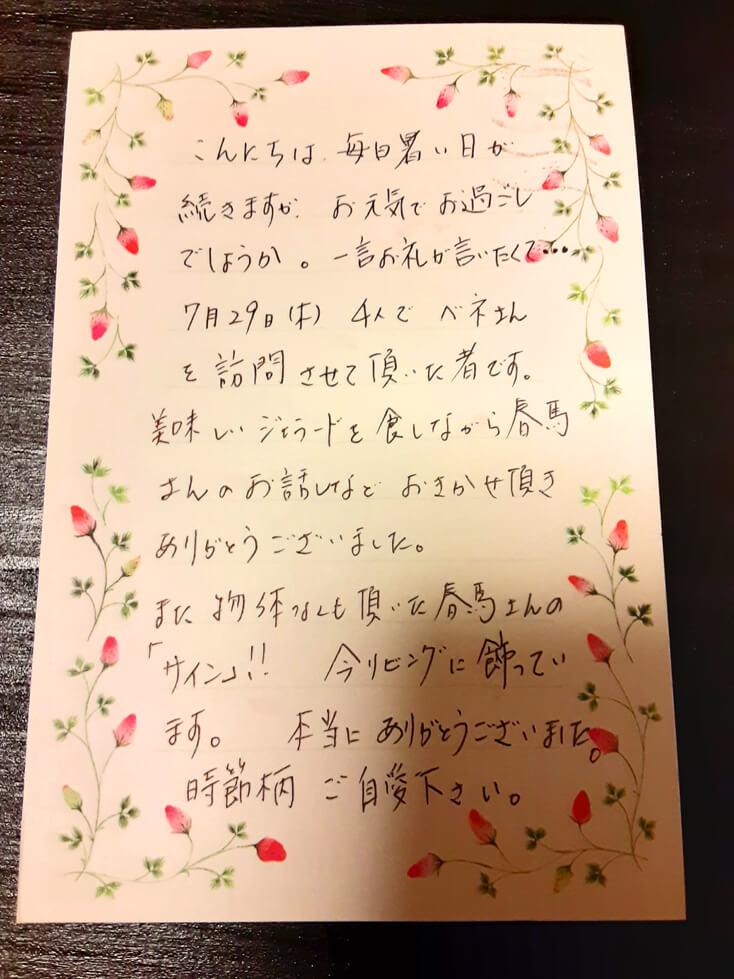 こんにちは、毎日暑い日が
続きますが、お元気でお過ごし
でしょうか。一言お礼が言いたくて…
7月29日(木) 4人で ベネさん
を訪問させて頂いた者です。
美味しいジェラードを食しながら春馬
さんのお話しなど おきかせ頂き
ありがとうございました。
また物体なくも頂いた春馬さんの
「サイン」!! 今リビングに飾ってい
ます。 本当にありがとうございました。
時節柄 ご自愛下さい。